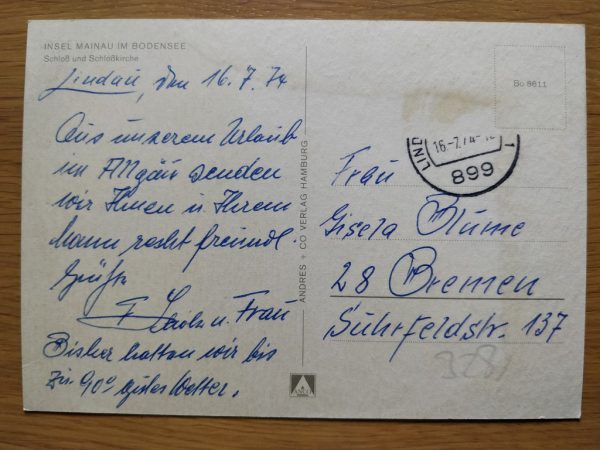 INSEL MAINAU IM BODENSEE
Schloß und Schloßkirche
Lindau, den 16.7.74
Aus unserem Urlaub
im Allgäu senden
wir Ihnen u. Ihrem
Mann recht freundl.
Grüße
u. Frau
Bisher hatten wir bis
zu 90% gutes Wetter.
ANDRES + CO VERLAG HAMBURG
Bo 8611
LIND
16.-7.74-1
1
899
Frau
Gisela Blume
28 Bremen
Suhrfeldstr. 137
328